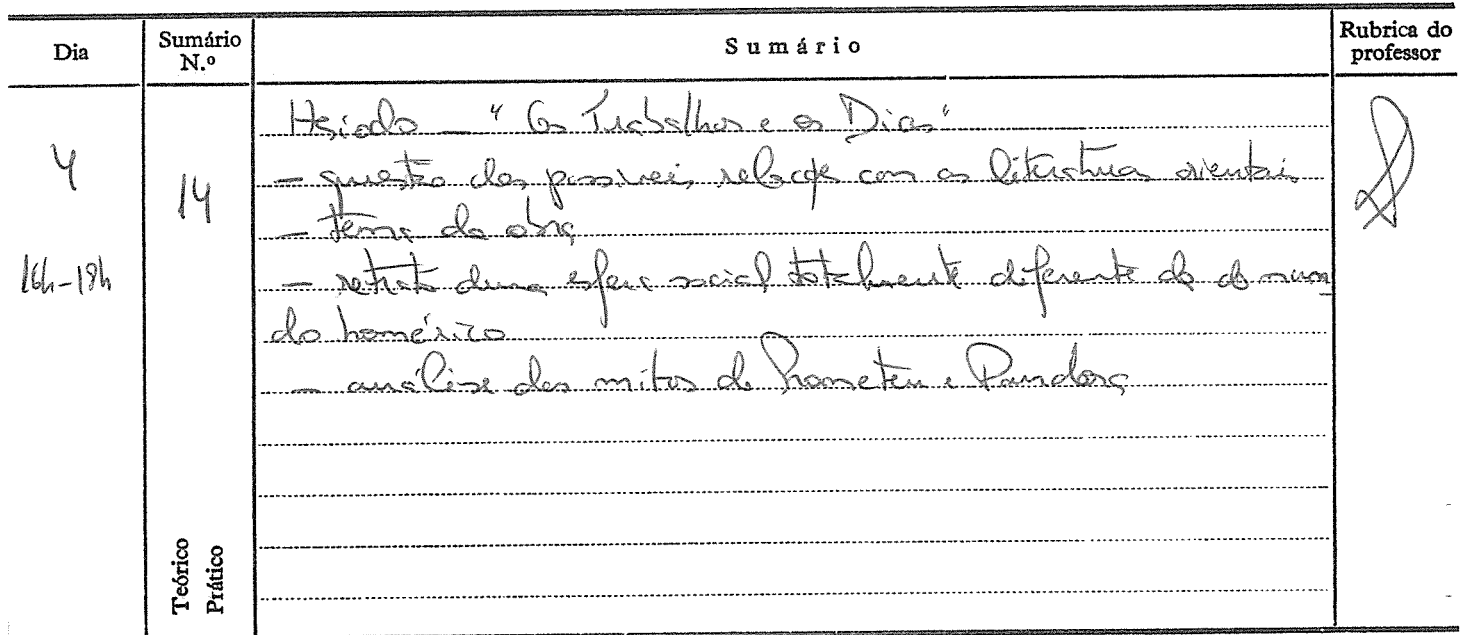 Dia
Sumário N.º
Sumário
Rubrica do professor
4
16h-18h
14
Hesíodo - "Os Trabalhos e os Dias"
- questão das possíveis relações com as literaturas orientais
- tema da obra
- retrato duma esfera social totalmente diferente da do mun
do homérico
- análise dos mitos de Prometeu e Pandora
Teórico
Prático